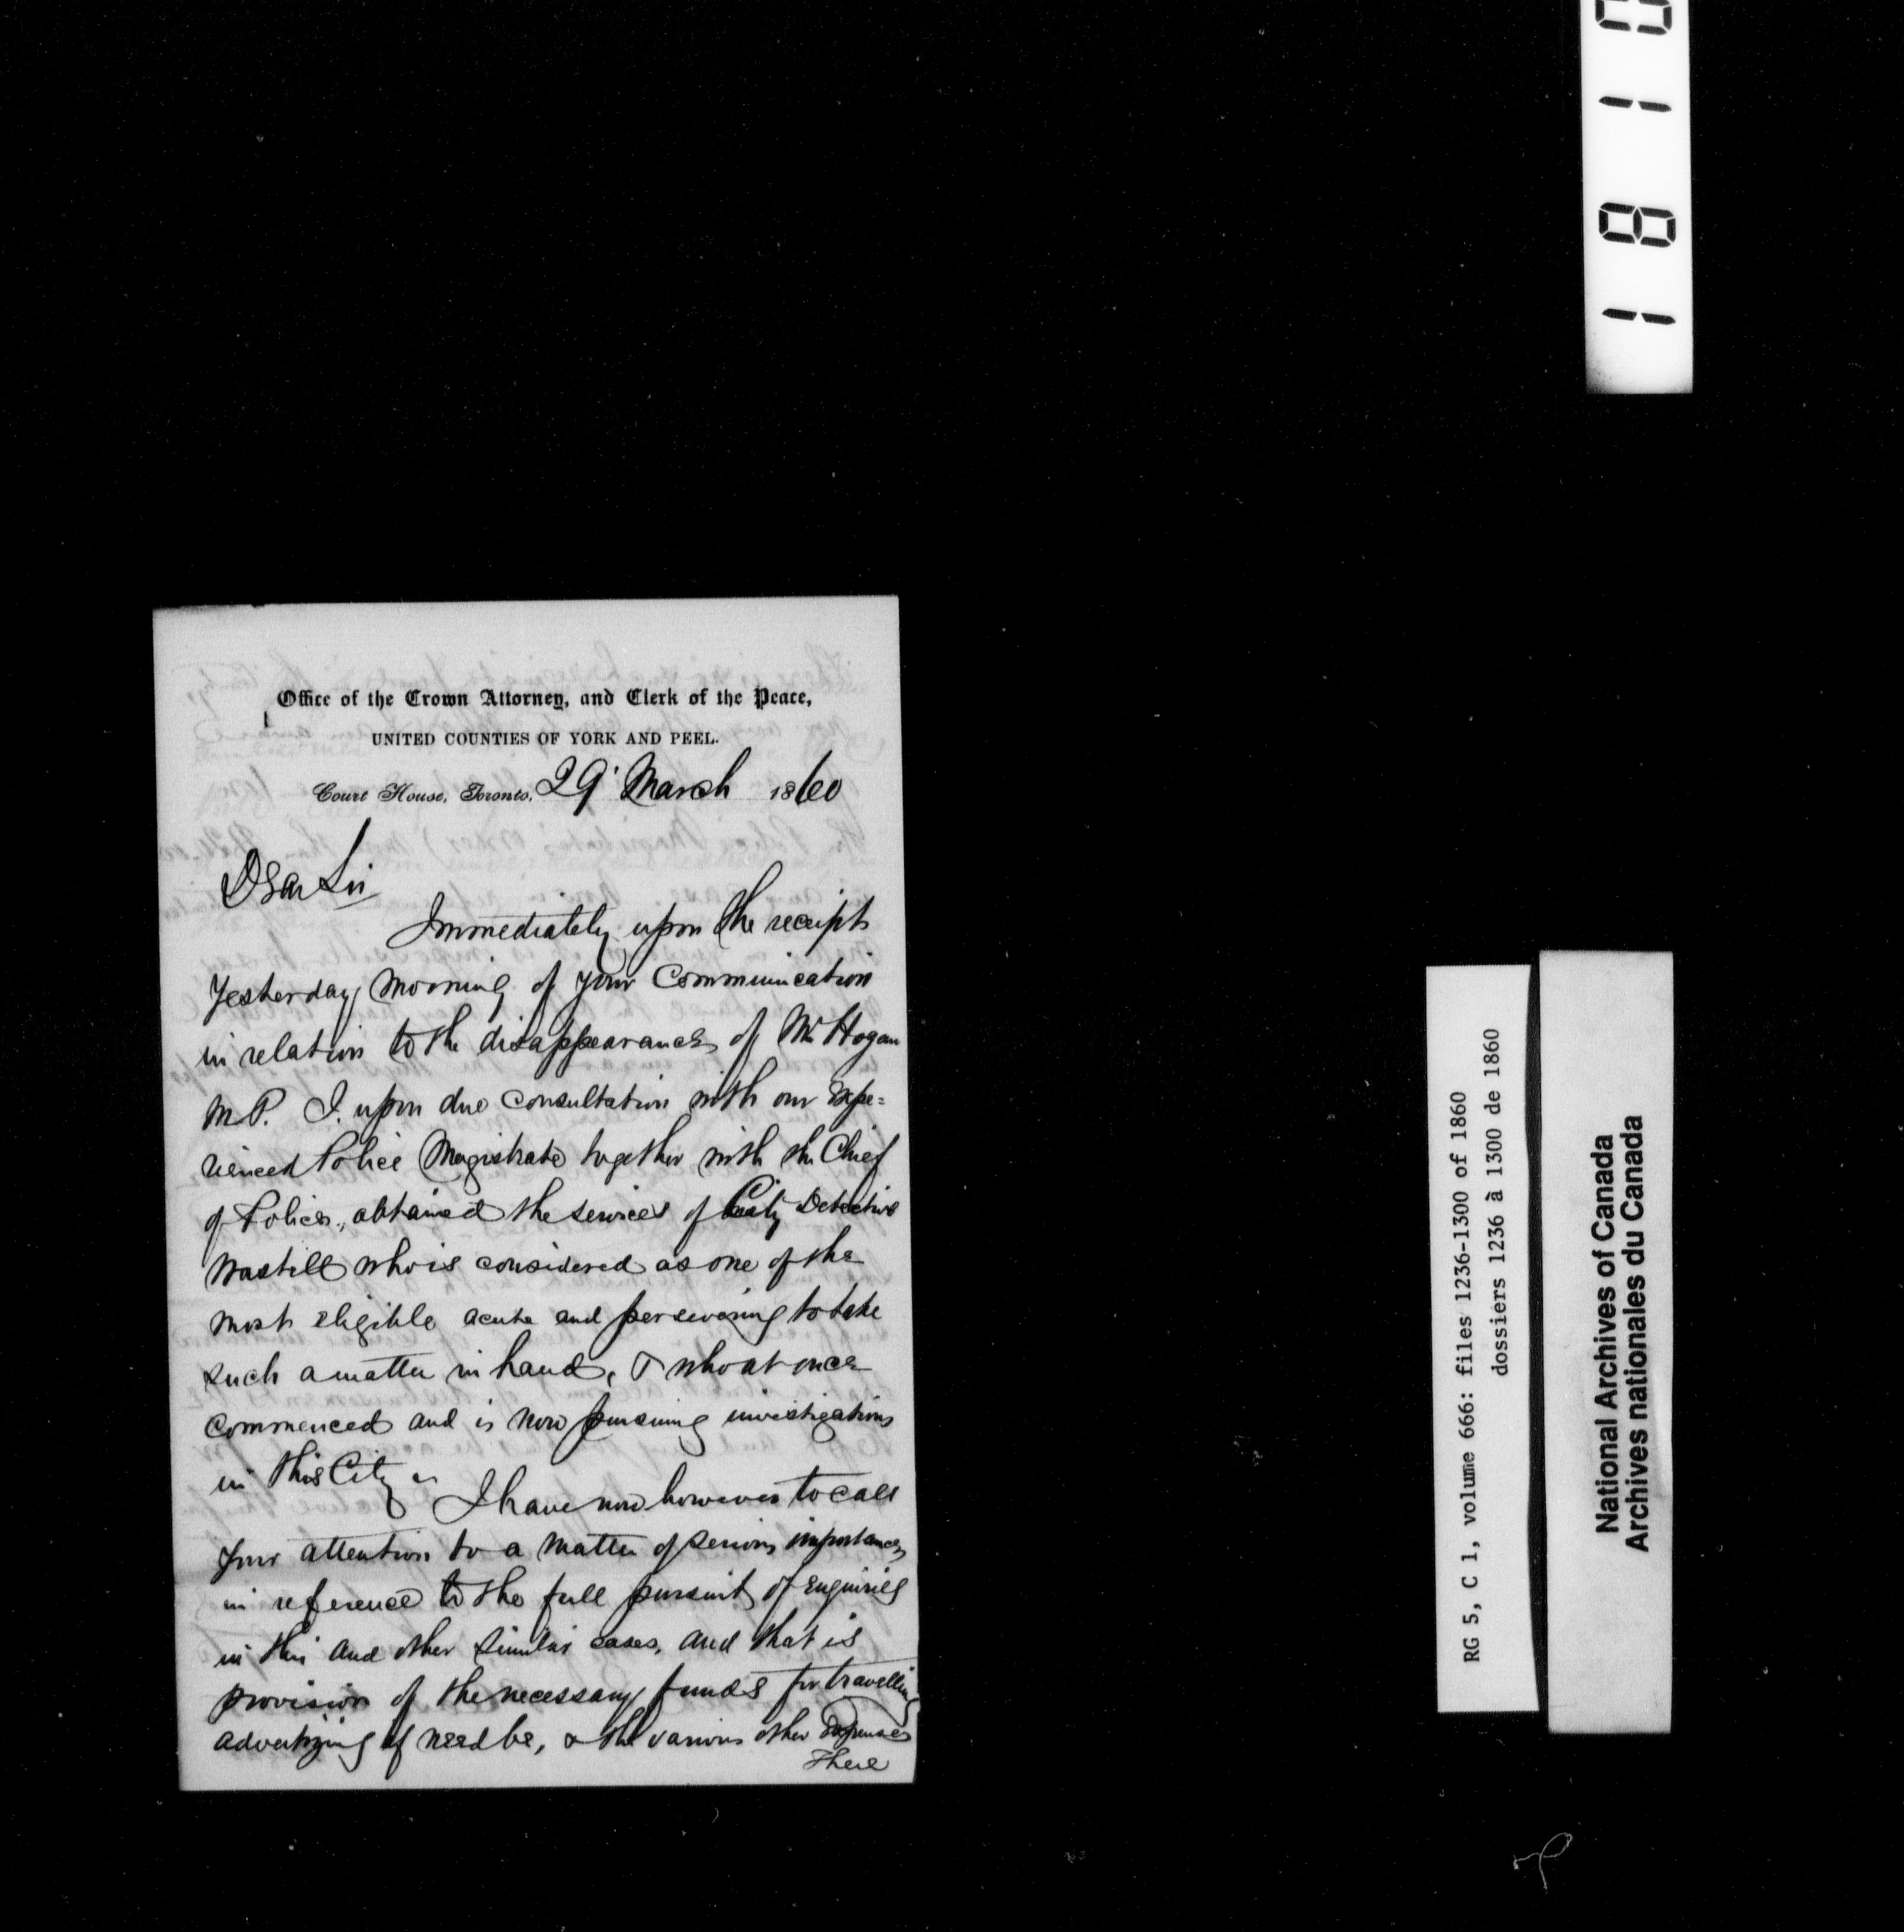 Office of the Crown Attorney, and Clerk of the Peace,
UNITED COUNTIES OF YORK AND PEEL.
Court House, Toronto, 29 March 1860
Dear Sir
Immediately upon the receipt
yesterday morning of your Communication
in relation to the disappearance of Mr Hogan
M.P. I upon due consultation with our Expe=
rienced Police Magistrate together with the Chief
of Police, obtained the services of City Detective
Wastell who is considered as one of the
most eligible acute and persevering to take
such a matter in hand, & who at once
commenced and is now pursuing investigations
in this City
I have now however to call
your attention to a matter of serious importance,
in reference to the full pursuit of enquiries
in this and other similar cases, and that is
provision of the necessary funds for travelling
advertizing if need be, & the various other Expenses
There
1 8 1 0
RG 5, C 1, volume 666: files 1236-1300 of 1860
dossiers 1236 à 1300 de 1860
National Archives of Canada
Archives nationales du Canada